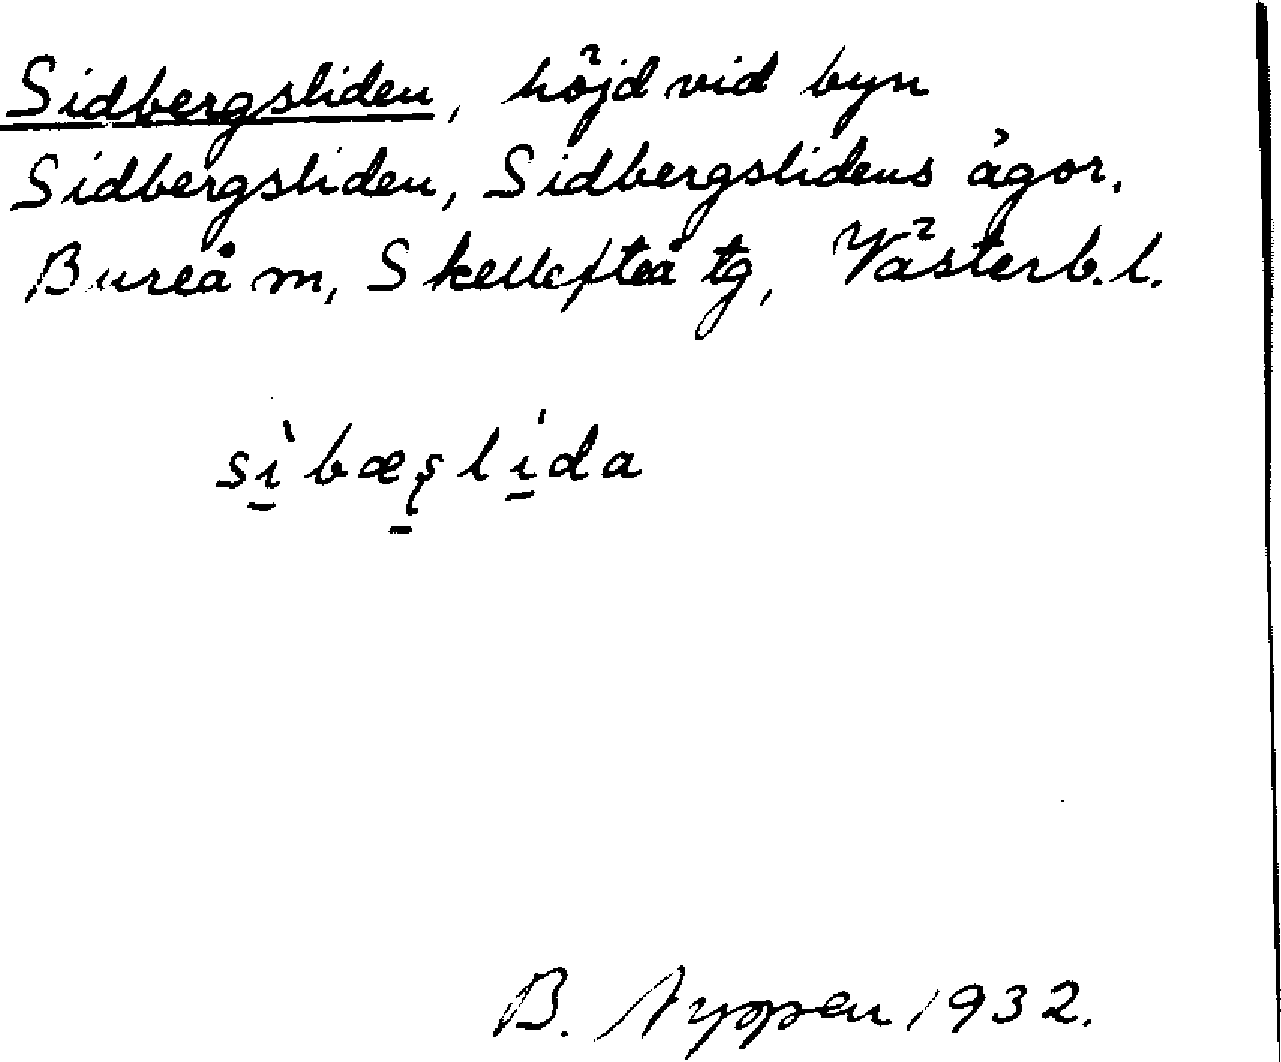 Sidbergsliden, höjd vid byn
Sidbergsliden, Sidbergslidens ägor,
Bureå m, Skellefteå tg, Västerb. l.
sì̠bæ̠ʂlí̠da
B. Nyppen 1932.